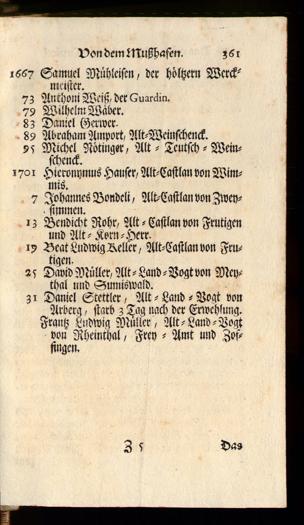 Von dem Mußhafen. 361
1667 Samuel Mühleisen, der höltzern Werck-
meister.
73 Anthoni Weiß, der Guardin.
79 Wilhelm Wäber.
83 Daniel Gerwer.
89 Abraham Amport, Alt-Weinschenck.
95 Michel Nötinger, Alt-Teutsch-Wein-
schenck.
1701 Hieronymus Hauser, Alt-Castlan von Wim-
mis.
7 Johannes Bondeli, Alt-Castlan von Zwey-
simmen.
13 Bendicht Rohr, Alt-Castlan von Frutigen
und Alt-Korn-Herr.
19 Beat Ludwig Keller, Alt-Castlan von Fru-
tigen.
25 David Müller, Alt-Land-Vogt von Mey-
thal und Sumiswald.
31 Daniel Stettler, Alt-Land-Vogt von
Arberg, starb 3 Tag nach der Erwehlung.
Frantz Ludwig Müller, Alt-Land-Vogt
von Rheinthal, Frey-Amt und Zof-
fingen.
Z 5 Das